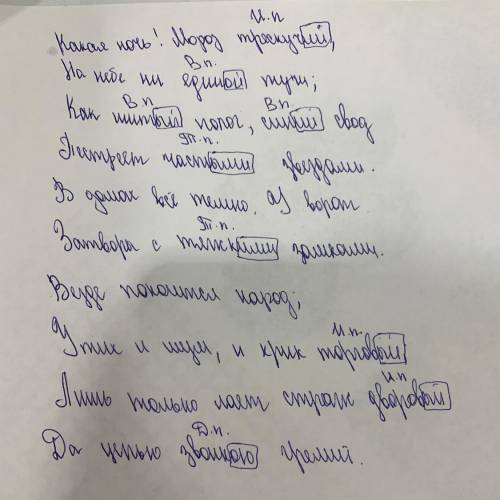 И.п
Какая ночь! Мороз трескучий,
В п.
На небе ни единой тучи;
В.п. В.п.
Как шитый полог, синий свод
Т.п.
Пестреет частыми звездами.
В домах всё темно. У ворот
Т.п.
Затворы с тяжкими замками.
Везде покоится народ;
И.п.
Утих и шум, и крик торговой
и.п
Лишь только лает страж дворовой
Д.п.
Да цепью звонкою гремит.